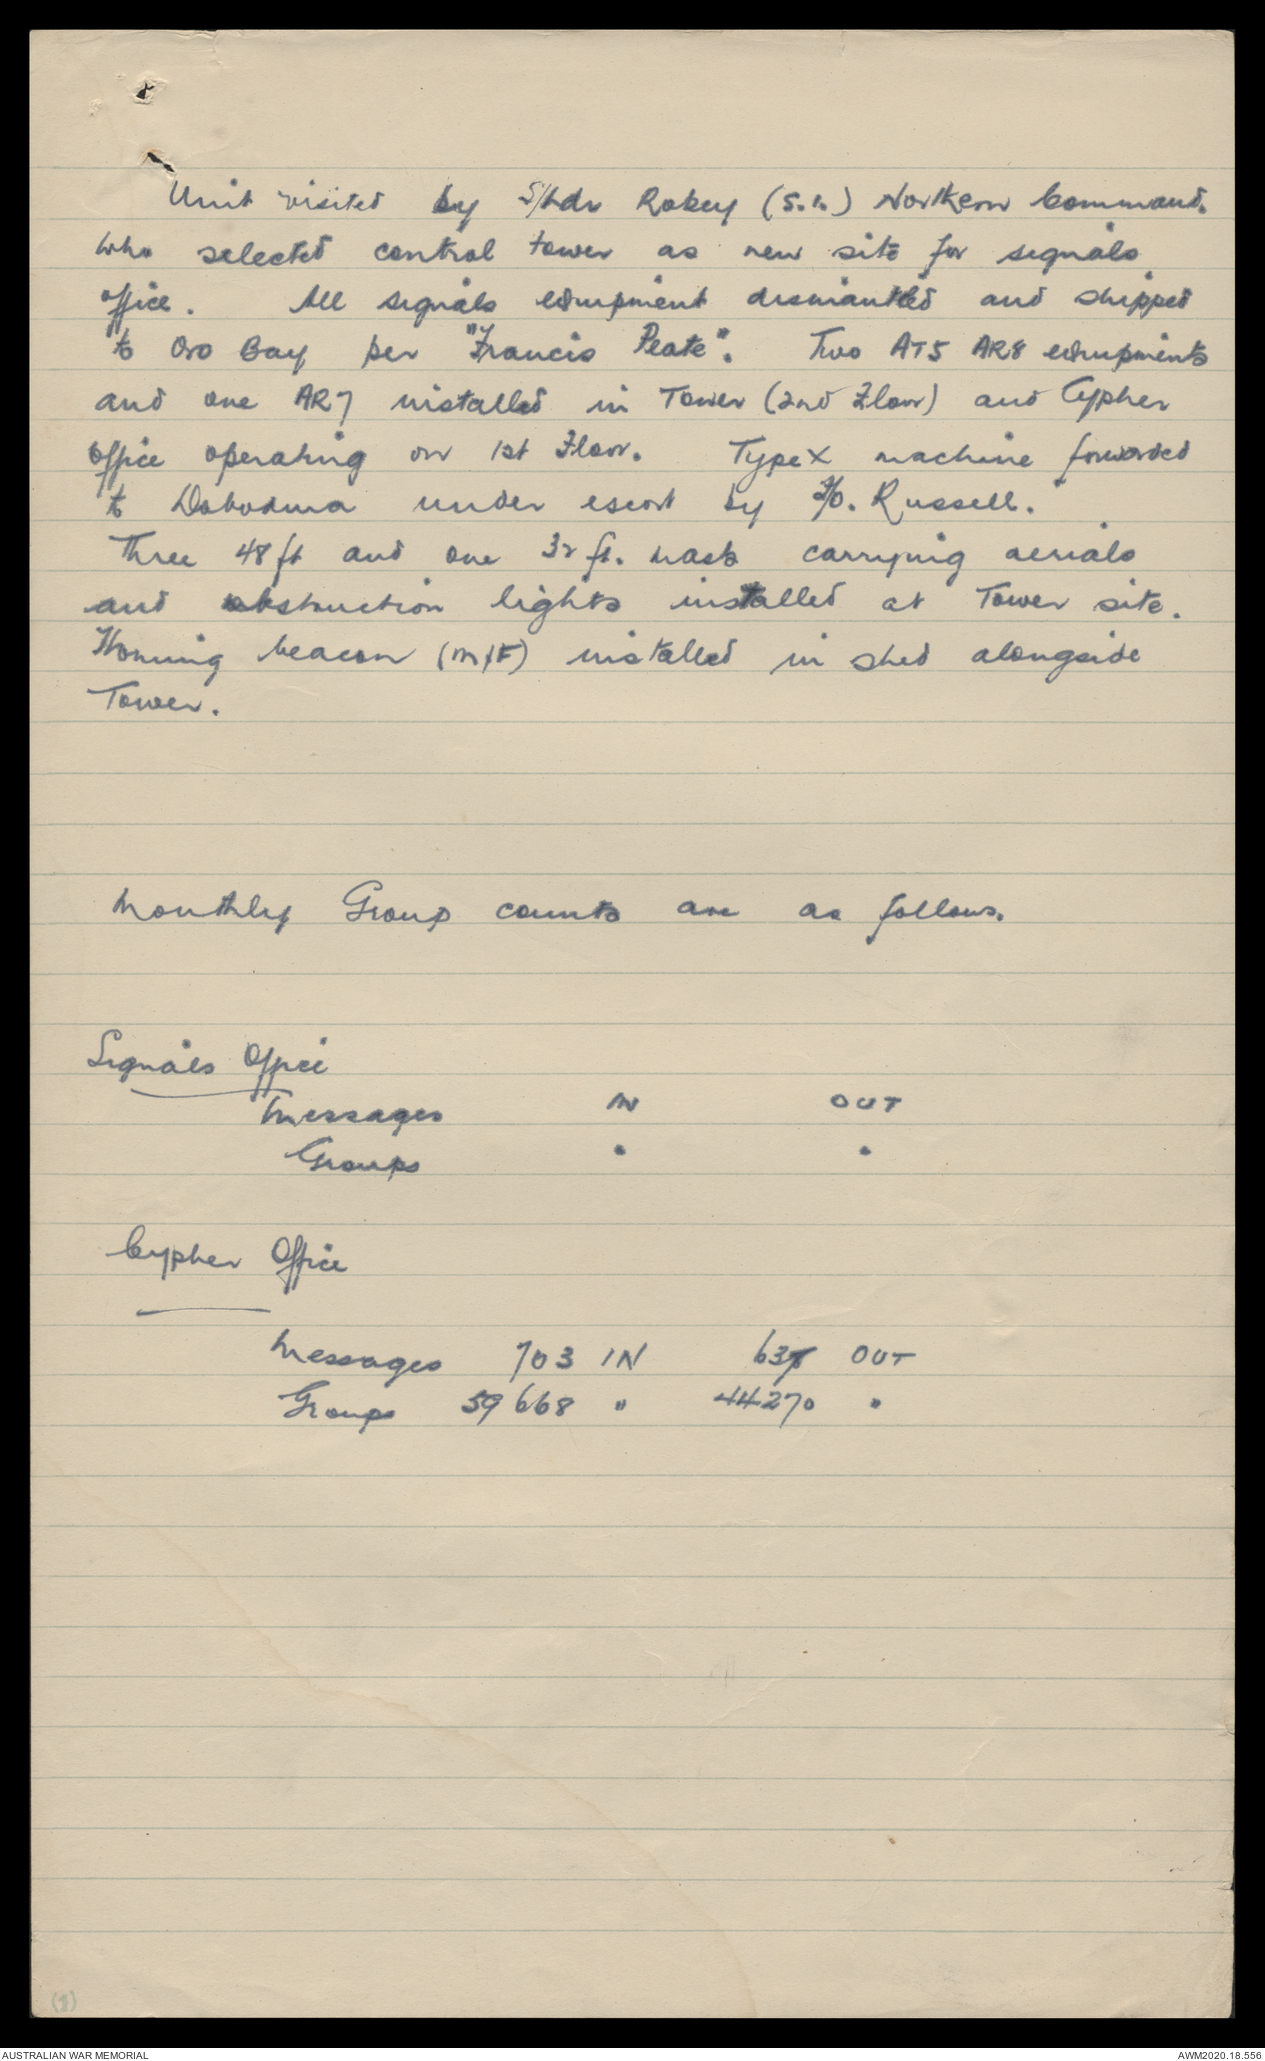 Unit visited by S/Ldr Robey (S.1.) Northern Command.
who selected control tower as new site for signals
office. All signals equipment dismantled and shipped
to Oro Bay per "Francis Peate". Two AT5 AR8 equipments
and one AR7 installed in Tower (2nd Floor) and Cypher
Office operating on 1st Floor. TypeX machine forwarded
to Dobodura under escort by F/O. Russell.
Three 48 ft and one 32 ft. masts carrying aerials
and obstruction lights installed at Tower site.
Homing beacon (M/F) installed in shed alongside
Tower.
Monthly Group counts are as follows.
Signals Office
Messages IN OUT
Groups " "
Cypher Office
Messages 703 IN OUT
Groups 59668 " 44270 "
(8)
AUSTRALIAN WAR MEMORIAL
AWM2020.18.556